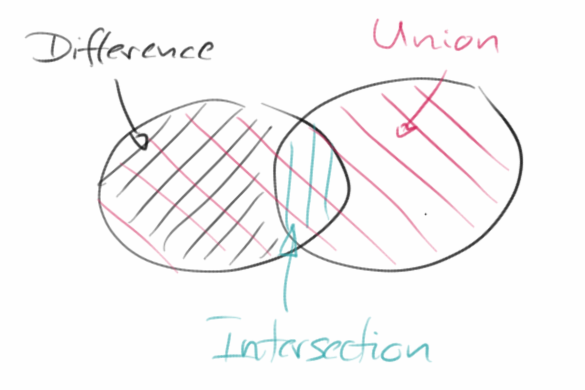 Difference
Union
Intersection